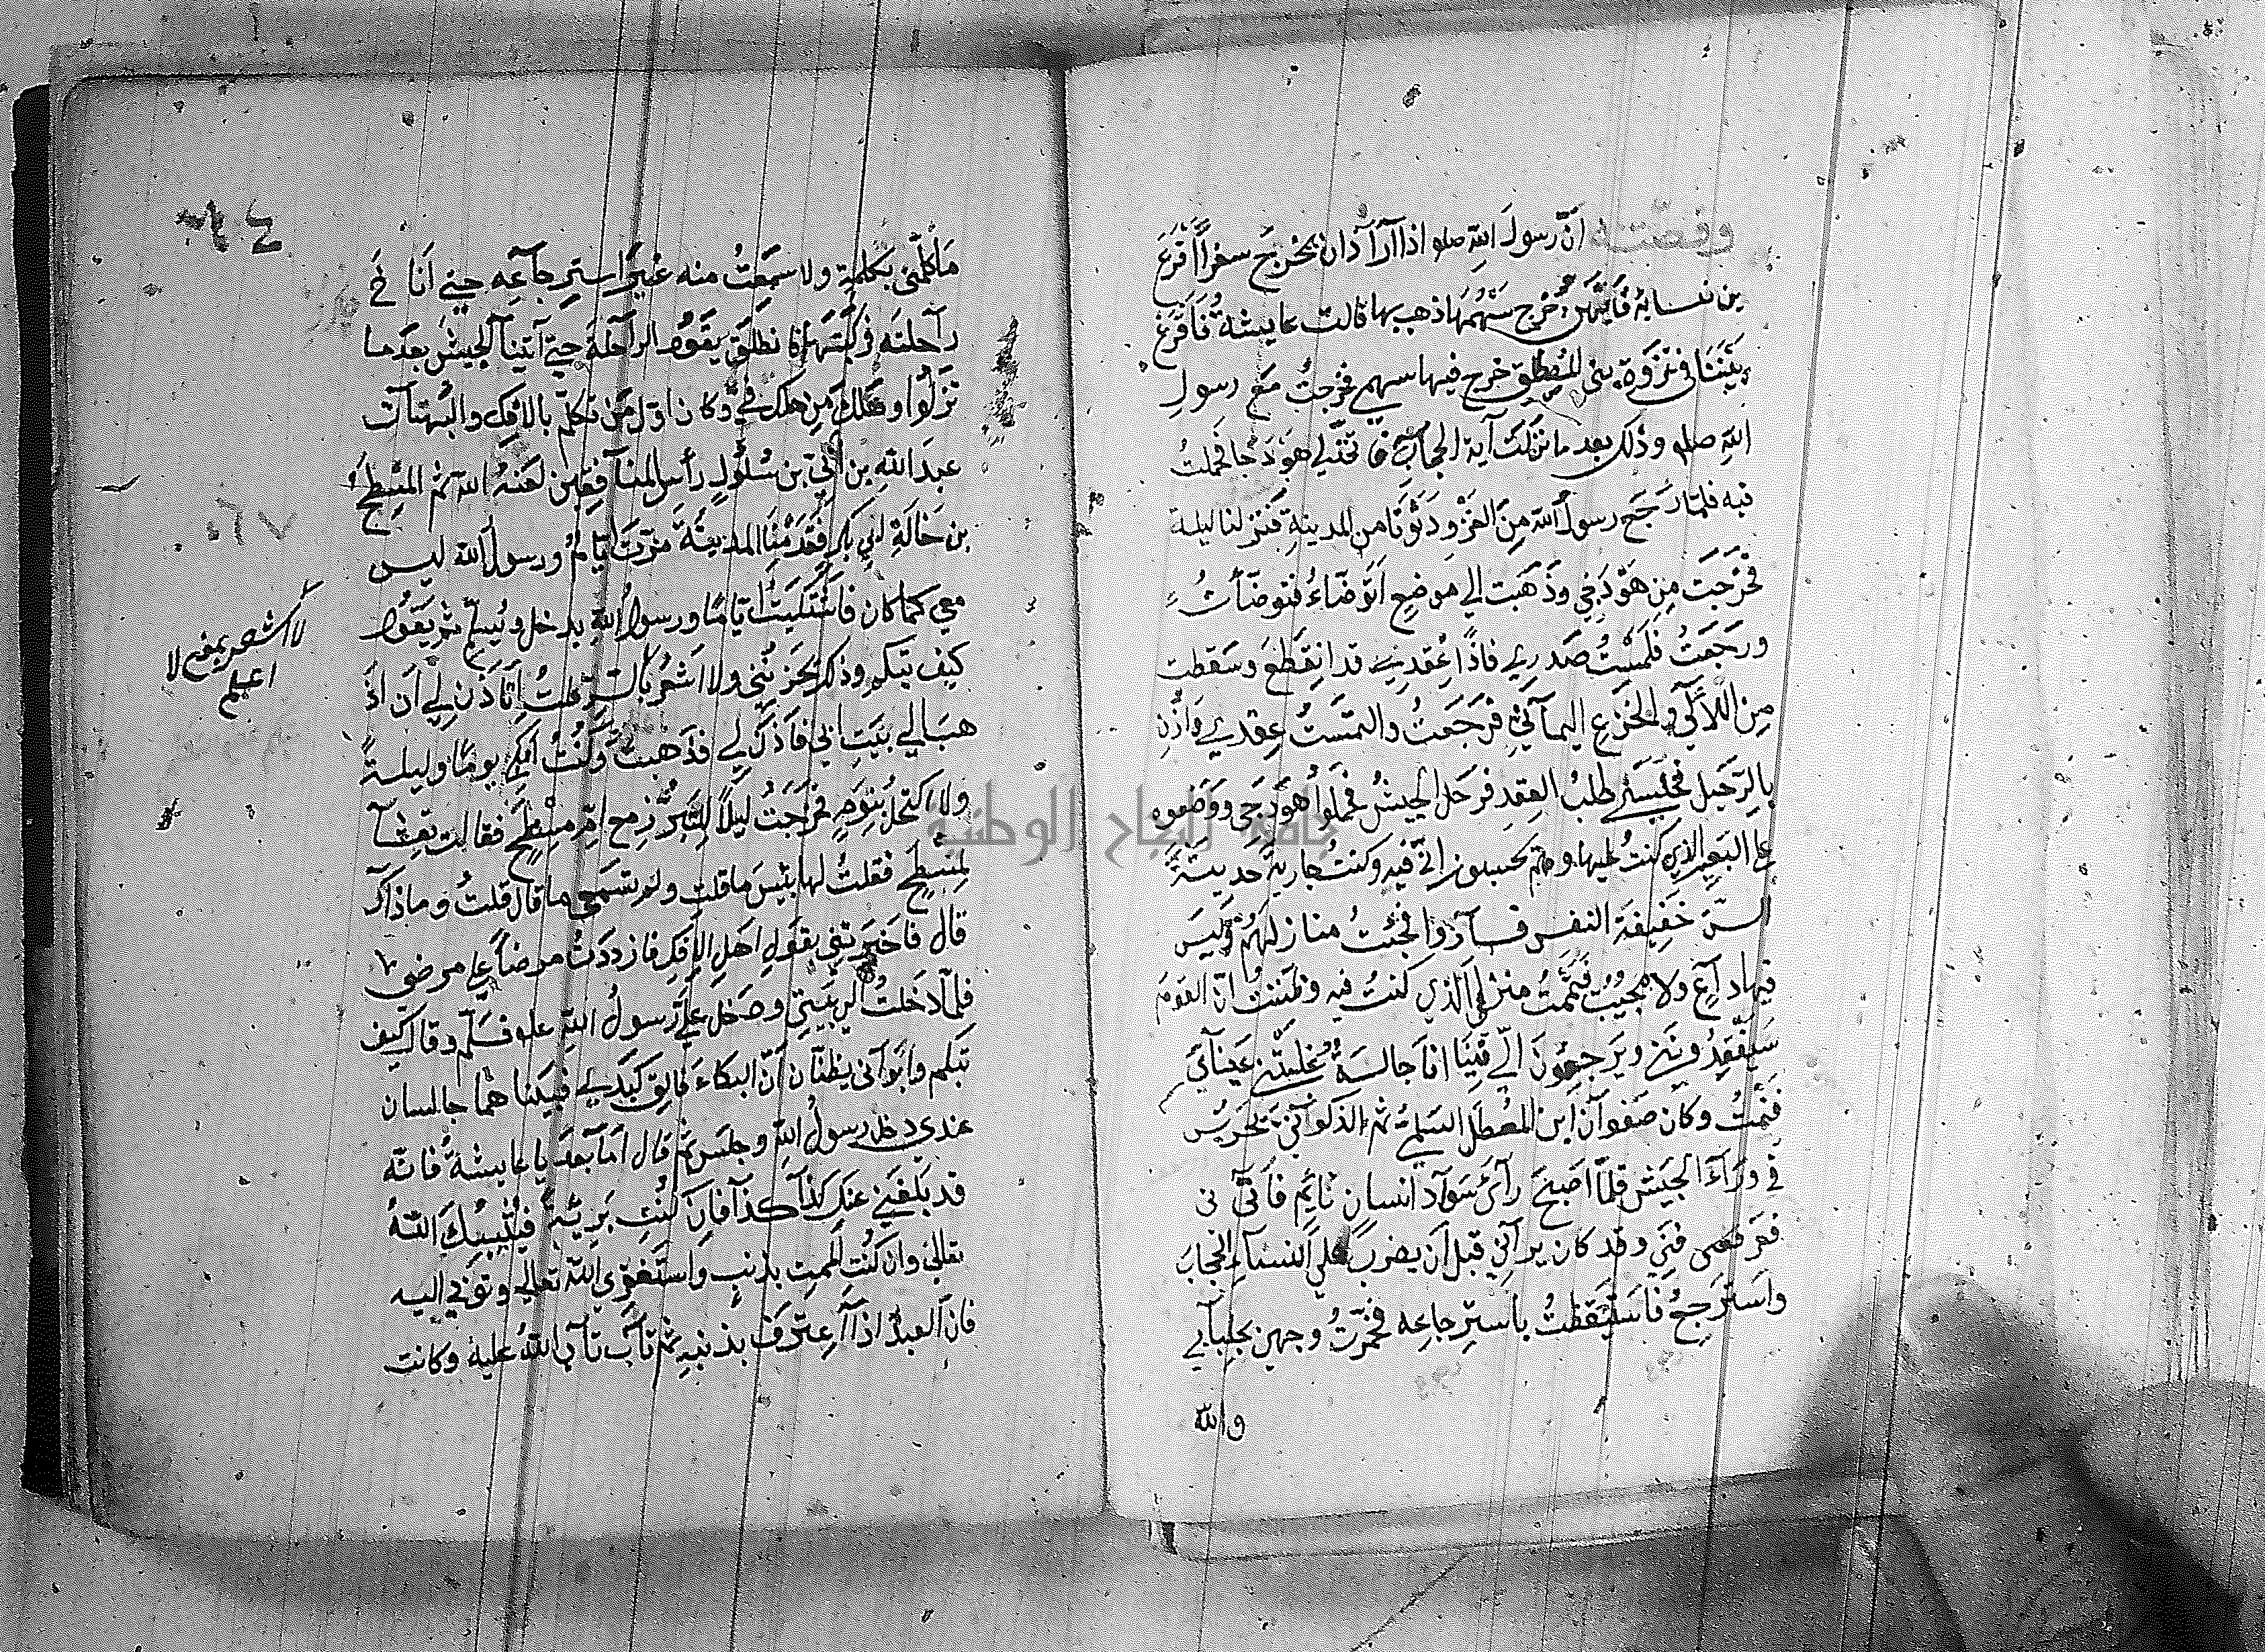 وقصّته انّ رسول الله صلو اذا آرآدان يخرج سفراً اقرع
بين نسايهٔ فايّهنّ خرج سهمها ذهب بها قالت عايشة فاقرع
بيننا في غزوة بني المصطلق خرج فيها سهمي فخرجت مع رسول
الله صلو وذلك بعد ما نزلت آية الحجاب هودجا فحملت
فيه فلمّا رجع رسول الله من الغزو ودنونا من المدينة فنزلنا ليلة
فخرجت من هودجي وذهبت الي موضع اتوضاء فتوضأت
ورجعت فلمست صدري فاذا عقدي قد انقطع وسقطت
من اللآلي والجزع اليمآني فرجعت والتمست عقدي واذّن
بالرّحيل فحبسني طلب العقد فرحل الجيش فحملوا هودجي ووضعوه
علي البعير الذي كنت عليها وهم يحسبون انّي فيه وكنت جارية حديثة
السنّ خفيفة النفس فسآروا فجئت منازلهم وليس
فيها داع ولا مجيب فتيممت منزلي الّذي كنت فيه وظننت انّ القوم
سيفقدونني ويرجعون الي فبينا انا جالسة غلبتني عينآي
فنمت وكان صفوآن ابن المعطل السلمي ثم الذكوآني تحرس
في ورآء الجيش فلمّا اصبح رآى سوآد انسان نائم فاتى ني
فعرفني وقد كان يرآني قبل ان يضرب علي النسآء الحجاب
واسترجع فاستيقظت باسترجاعه فخمّرت وجهي بجلبآبي
والله
٦٤
ما كلّمني بكلمة ولا سمعت منه غير استرجآعه حتي انا خ
رآحلته فركبتها فانطلق يقود الرآحلة حتي آتينا الجيش بعد ما
نزلوا وهلك من هلك فيّ وكان اوّل من تكلّم بالافك والبهتآت
عبد الله بن ابيّ بن سلول رأس المنآفقين لعنه الله ثم المسطح
بن خالة ابي بكر فقدمنا المدينة مرّت ايّام ورسول الله ليس
معي كما كان فاشتكيت ايّاما ورسول الله يدخل ويسلّم ثم يقول
كيف تيكم وذلك يحزنني ولا اشعر بالشر قلت اتاذن لي ان اذ
هب الي بيت ابي فاذن لي فذهبت وكنت ابكي يوما وليلةً
ولا اكتحل بنوم فخرجت ليلا للتبرّز مع امّ مسطح فقالت تعسآ
لمسطح فقلت لها بئس ما قلت ولم تسمعي ما قال قلت وما ذآك
قال فاخبرتني بقول اهل الافك فازددت مرضاً علي مرضي
فلمّا دخلت الي بيتي وصخل عليّ رسول الله صلو فسلّم وقال كيف
تيكم وابوآني يظنّان انّ البكاء فالق كبدي فبينما هما جالسان
عندي دخل رسول الله وجلس ثم قال امّا بعد يا عايشة فانّه
قد بلغني عنك كذآ كذآ فان كنت بريئة فيثيبك الله
تعالي وان كنت الممت بذنب واستغفري الله تعالي وتوبي اليه
فان العبد اذا آعترف بذنبه ثم تاب تآب الله عليه وكانت
لا اشعر بمعني لا
اعلم
جامعة النجاح الوطنية